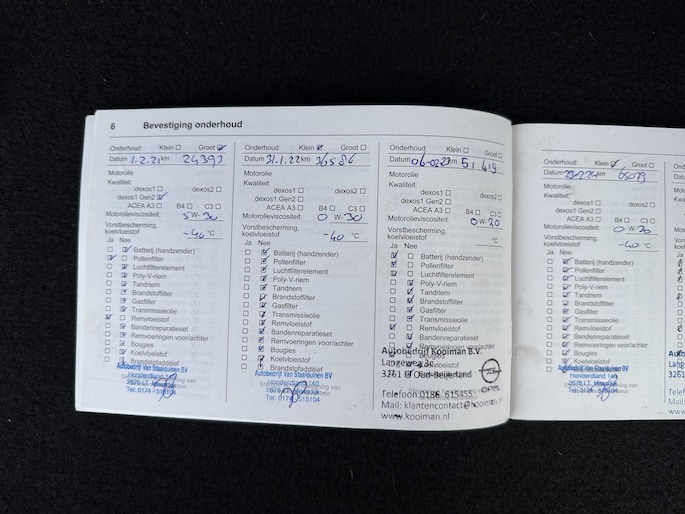 6 Bevestiging onderhoud
Onderhoud: Klein Groot
Datum 1-2-21 km 24393
Motorolie
Kwaliteit:
dexos1 dexos2
dexos1 Gen2
ACEA A3 B4 C3
Motorolieviscositeit: 5 W-30
Vorstbescherming, koelvloeistof -40 °C
Ja Nee
Batterij (handzender)
Pollenfilter
Luchtfilterelement
Poly-V-riem
Tandriem
Brandstoffilter
Gasfilter
Transmissieolie
Remvloeistof
Bandenreparatieset
Remvoeringen voor/achter
Bougies
Koelvloeistof
Brandstofadditief
Autobedrijf Van Staalduinen BV
Honderdland 140
2676 LT Maasdijk
Tel: 0174 - 515104
Onderhoud: Klein Groot
Datum 31-1-22 km 36586
Motorolie
Kwaliteit:
dexos1 dexos2
dexos1 Gen2
ACEA A3 B4 C3
Motorolieviscositeit: 0 W-30
Vorstbescherming, koelvloeistof -40 °C
Ja Nee
Batterij (handzender)
Pollenfilter
Luchtfilterelement
Poly-V-riem
Tandriem
Brandstoffilter
Gasfilter
Transmissieolie
Remvloeistof
Bandenreparatieset
Remvoeringen voor/achter
Bougies
Koelvloeistof
Brandstofadditief
Autobedrijf Van Staalduinen BV
Honderdland 140
2676 LT Maasdijk
Tel: 0174 - 515104
Onderhoud: Klein Groot
Datum 06-02-23 km 51419
Motorolie
Kwaliteit:
dexos1 dexos2
dexos1 Gen2
ACEA A3 B4 C3
Motorolieviscositeit: 0 W-20
Vorstbescherming, koelvloeistof °C
Ja Nee
Batterij (handzender)
Pollenfilter
Luchtfilterelement
Poly-V-riem
Tandriem
Brandstoffilter
Gasfilter
Transmissieolie
Remvloeistof
Bandenreparatieset
Remvoeringen voor/achter
Bougies
Autobedrijf Kooiman B.V.
Langeweg 3c
3261 Oud-Beijerland
Telefoon:0186-615455
OPEL
Mail: klantencontact@kooiman.nl
www.kooiman.nl
Onderhoud: Klein Groot
Datum km 65079
Motorolie
Kwaliteit:
dexos1 dexos2
dexos1 Gen2
ACEA A3 B4 C3
Motorolieviscositeit: 0 W-20
Vorstbescherming, koelvloeistof -40 °C
Ja Nee
Batterij (handzender)
Pollenfilter
Luchtfilterelement
Poly-V-riem
Tandriem
Brandstoffilter
Gasfilter
Transmissieolie
Remvloeistof
Bandenreparatieset
Remvoeringen voor/achter
Bougies
Koelvloeistof
Autobedrijf Van Staalduinen BV
Honderdland 140
2676 LT Maasdijk
Tel: 0174 - 515104